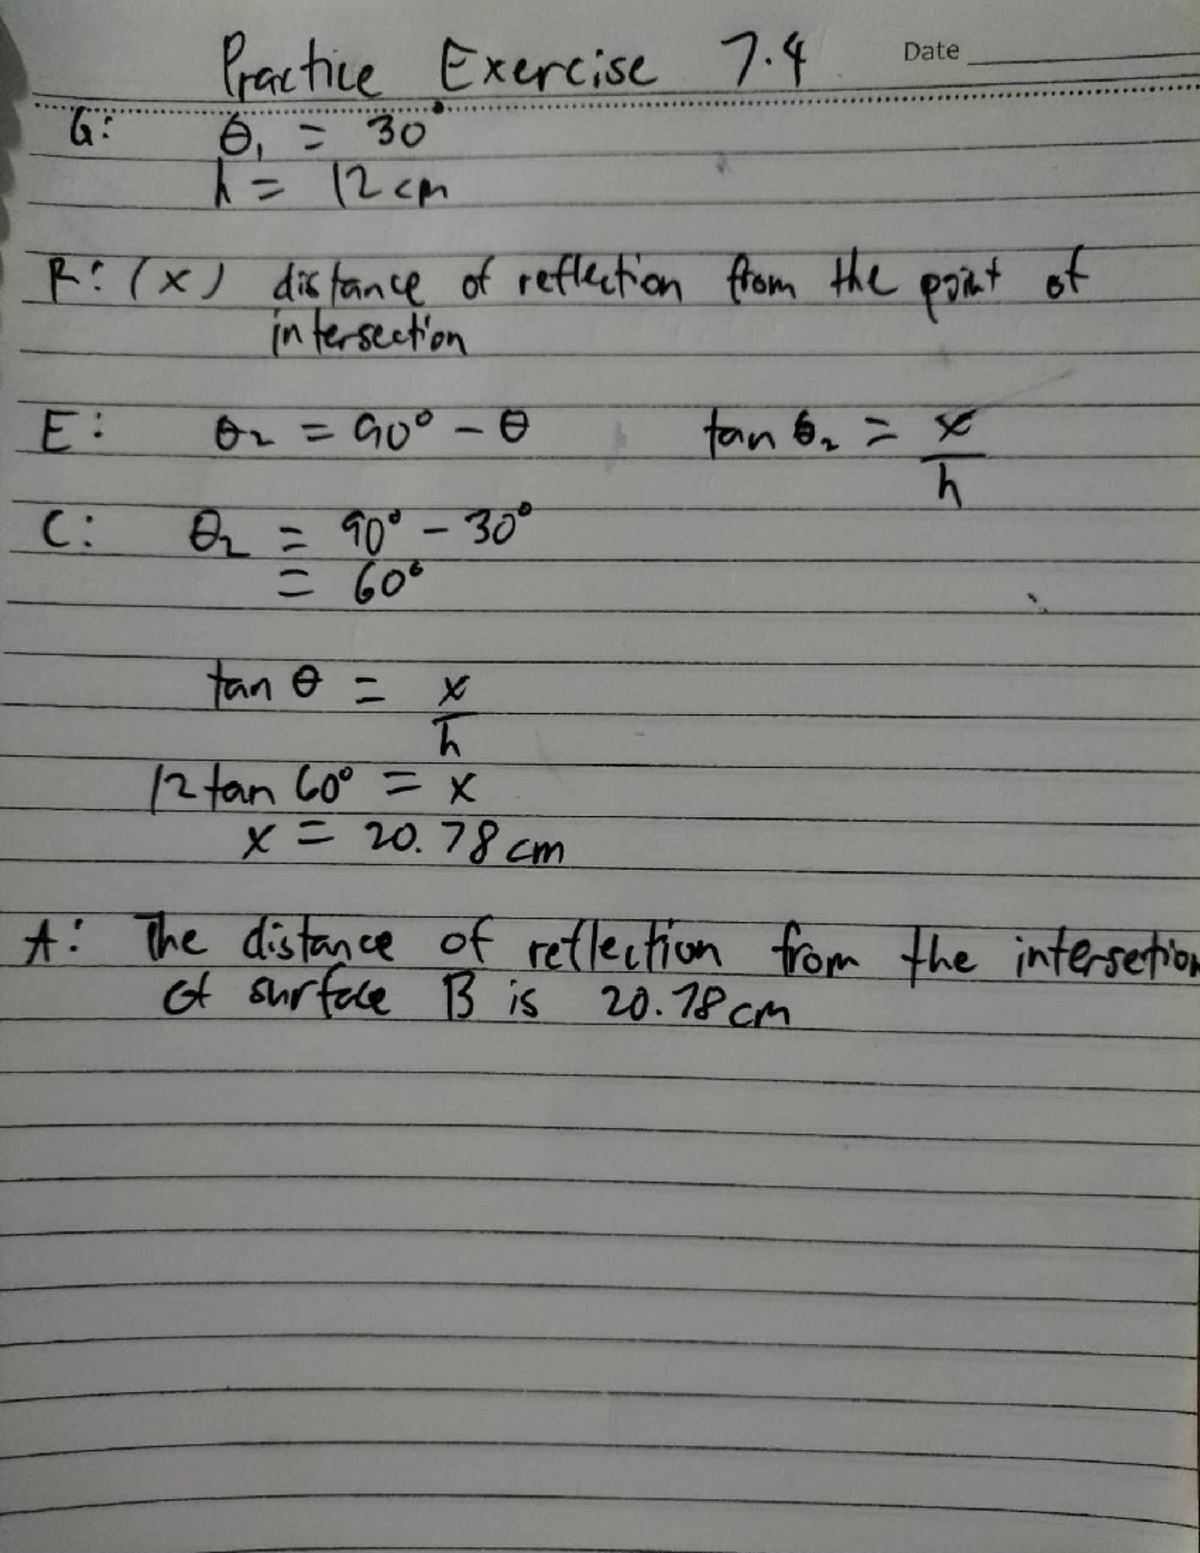 Practice Exercise 7.4
Date
G: θ₁ = 30°
h = 12 cm
R: (x) distance of reflection from the point of
intersection
E: θ₂ = 90° - θ tan θ₂ = x/h
C: θ₂ = 90° - 30°
= 60°
tan θ = x/h
12 tan 60° = x
x = 20.78 cm
A: The distance of reflection from the intersetion
of surface B is 20.78 cm